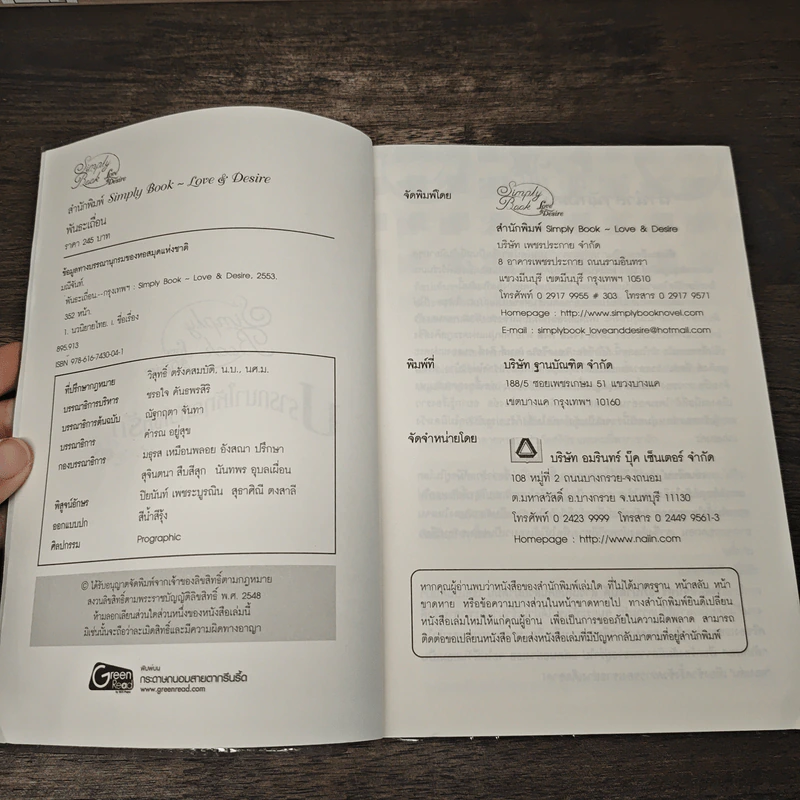 Simply Book Love & Desire
สำนักพิมพ์ Simply Book ~ Love & Desire
พันธะเถื่อน
ราคา 245 บาท
ข้อมูลทางบรรณานุกรมของหอสมุดแห่งชาติ
มณีจันท์.
พันธะเถื่อน.--กรุงเทพฯ : Simply Book – Love & Desire, 2553.
352 หน้า.
1. นวนิยายไทย. I. ชื่อเรื่อง
895.913
ISBN 978-616-7430-04-1
ที่ปรึกษากฎหมาย วิสุทธิ์ ตรังคสมบัติ, น.บ., นศ.ม.
บรรณาธิการบริหาร ชรอใจ คันธพรสิริ
บรรณาธิการต้นฉบับ ณัฐกฤตา จันทา
บรรณาธิการ คำรณ อยู่สุข
กองบรรณาธิการ มธุรส เหมือนพลอย อังสณา ปรึกษา
สุจินตนา สืบสีสุก นันทพร อุบลเผื่อน
พิสูจน์อักษร ปิยนันท์ เพชระบูรณิน สุธาศินี ตงสาลี
ออกแบบปก สีน้ำสีรุ้ง
ศิลปกรรม Prographic
© ได้รับอนุญาตจัดพิมพ์จากเจ้าของลิขสิทธิ์ตามกฎหมาย
สงวนลิขสิทธิ์ตามพระราชบัญญัติลิขสิทธิ์ พ.ศ. 2548
ห้ามลอกเลียนส่วนใดส่วนหนึ่งของหนังสือเล่มนี้
มิเช่นนั้นจะถือว่าละเมิดสิทธิ์และมีความผิดทางอาญา
Green Read
พิมพ์บน
กระดาษถนอมสายตากรีนรี้ด
www.greenread.com
จัดพิมพ์โดย
Simply Book Love & Desire
สำนักพิมพ์ Simply Book – Love & Desire
บริษัท เพชรประกาย จำกัด
8 อาคารเพชรประกาย ถนนรามอินทรา
แขวงมีนบุรี เขตมีนบุรี กรุงเทพฯ 10510
โทรศัพท์ 0 2917 9955 # 303 โทรสาร 0 2917 9571
Homepage : http://www.simplybooknovel.com
E-mail : simplybook_loveanddesire@hotmail.com
พิมพ์ที่ บริษัท ฐานบัณฑิต จำกัด
188/5 ซอยเพชรเกษม 51 แขวงบางแค
เขตบางแค กรุงเทพฯ 10160
จัดจำหน่ายโดย
บริษัท อมรินทร์ บุ๊ค เซ็นเตอร์ จำกัด
108 หมู่ที่ 2 ถนนบางกรวย-จงถนอม
ต.มหาสวัสดิ์ อ.บางกรวย จ.นนทบุรี 11130
โทรศัพท์ 0 2423 9999 โทรสาร 0 2449 9561-3
Homepage : http://www.naiin.com
หากคุณผู้อ่านพบว่าหนังสือของสำนักพิมพ์เล่มใด ที่ไม่ได้มาตรฐาน หน้าสลับ หน้า
ขาดหาย หรือข้อความบางส่วนในหน้าขาดหายไป ทางสำนักพิมพ์ยินดีเปลี่ยน
หนังสือเล่มใหม่ให้แก่คุณผู้อ่าน เพื่อเป็นการขออภัยในความผิดพลาด สามารถ
ติดต่อขอเปลี่ยนหนังสือ โดยส่งหนังสือเล่มที่มีปัญหากลับมาตามที่อยู่สำนักพิมพ์